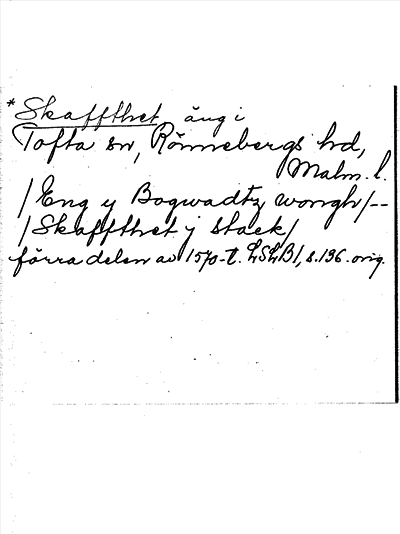 * Skaffthet äng i
Tofta sn, Rönnebergs hd,
Malm. l.
/Eng y Bogwadtz wongh/--
/Skaffthet y stack/
förra delen av 1570-t. LSLB1, s.136. orig.